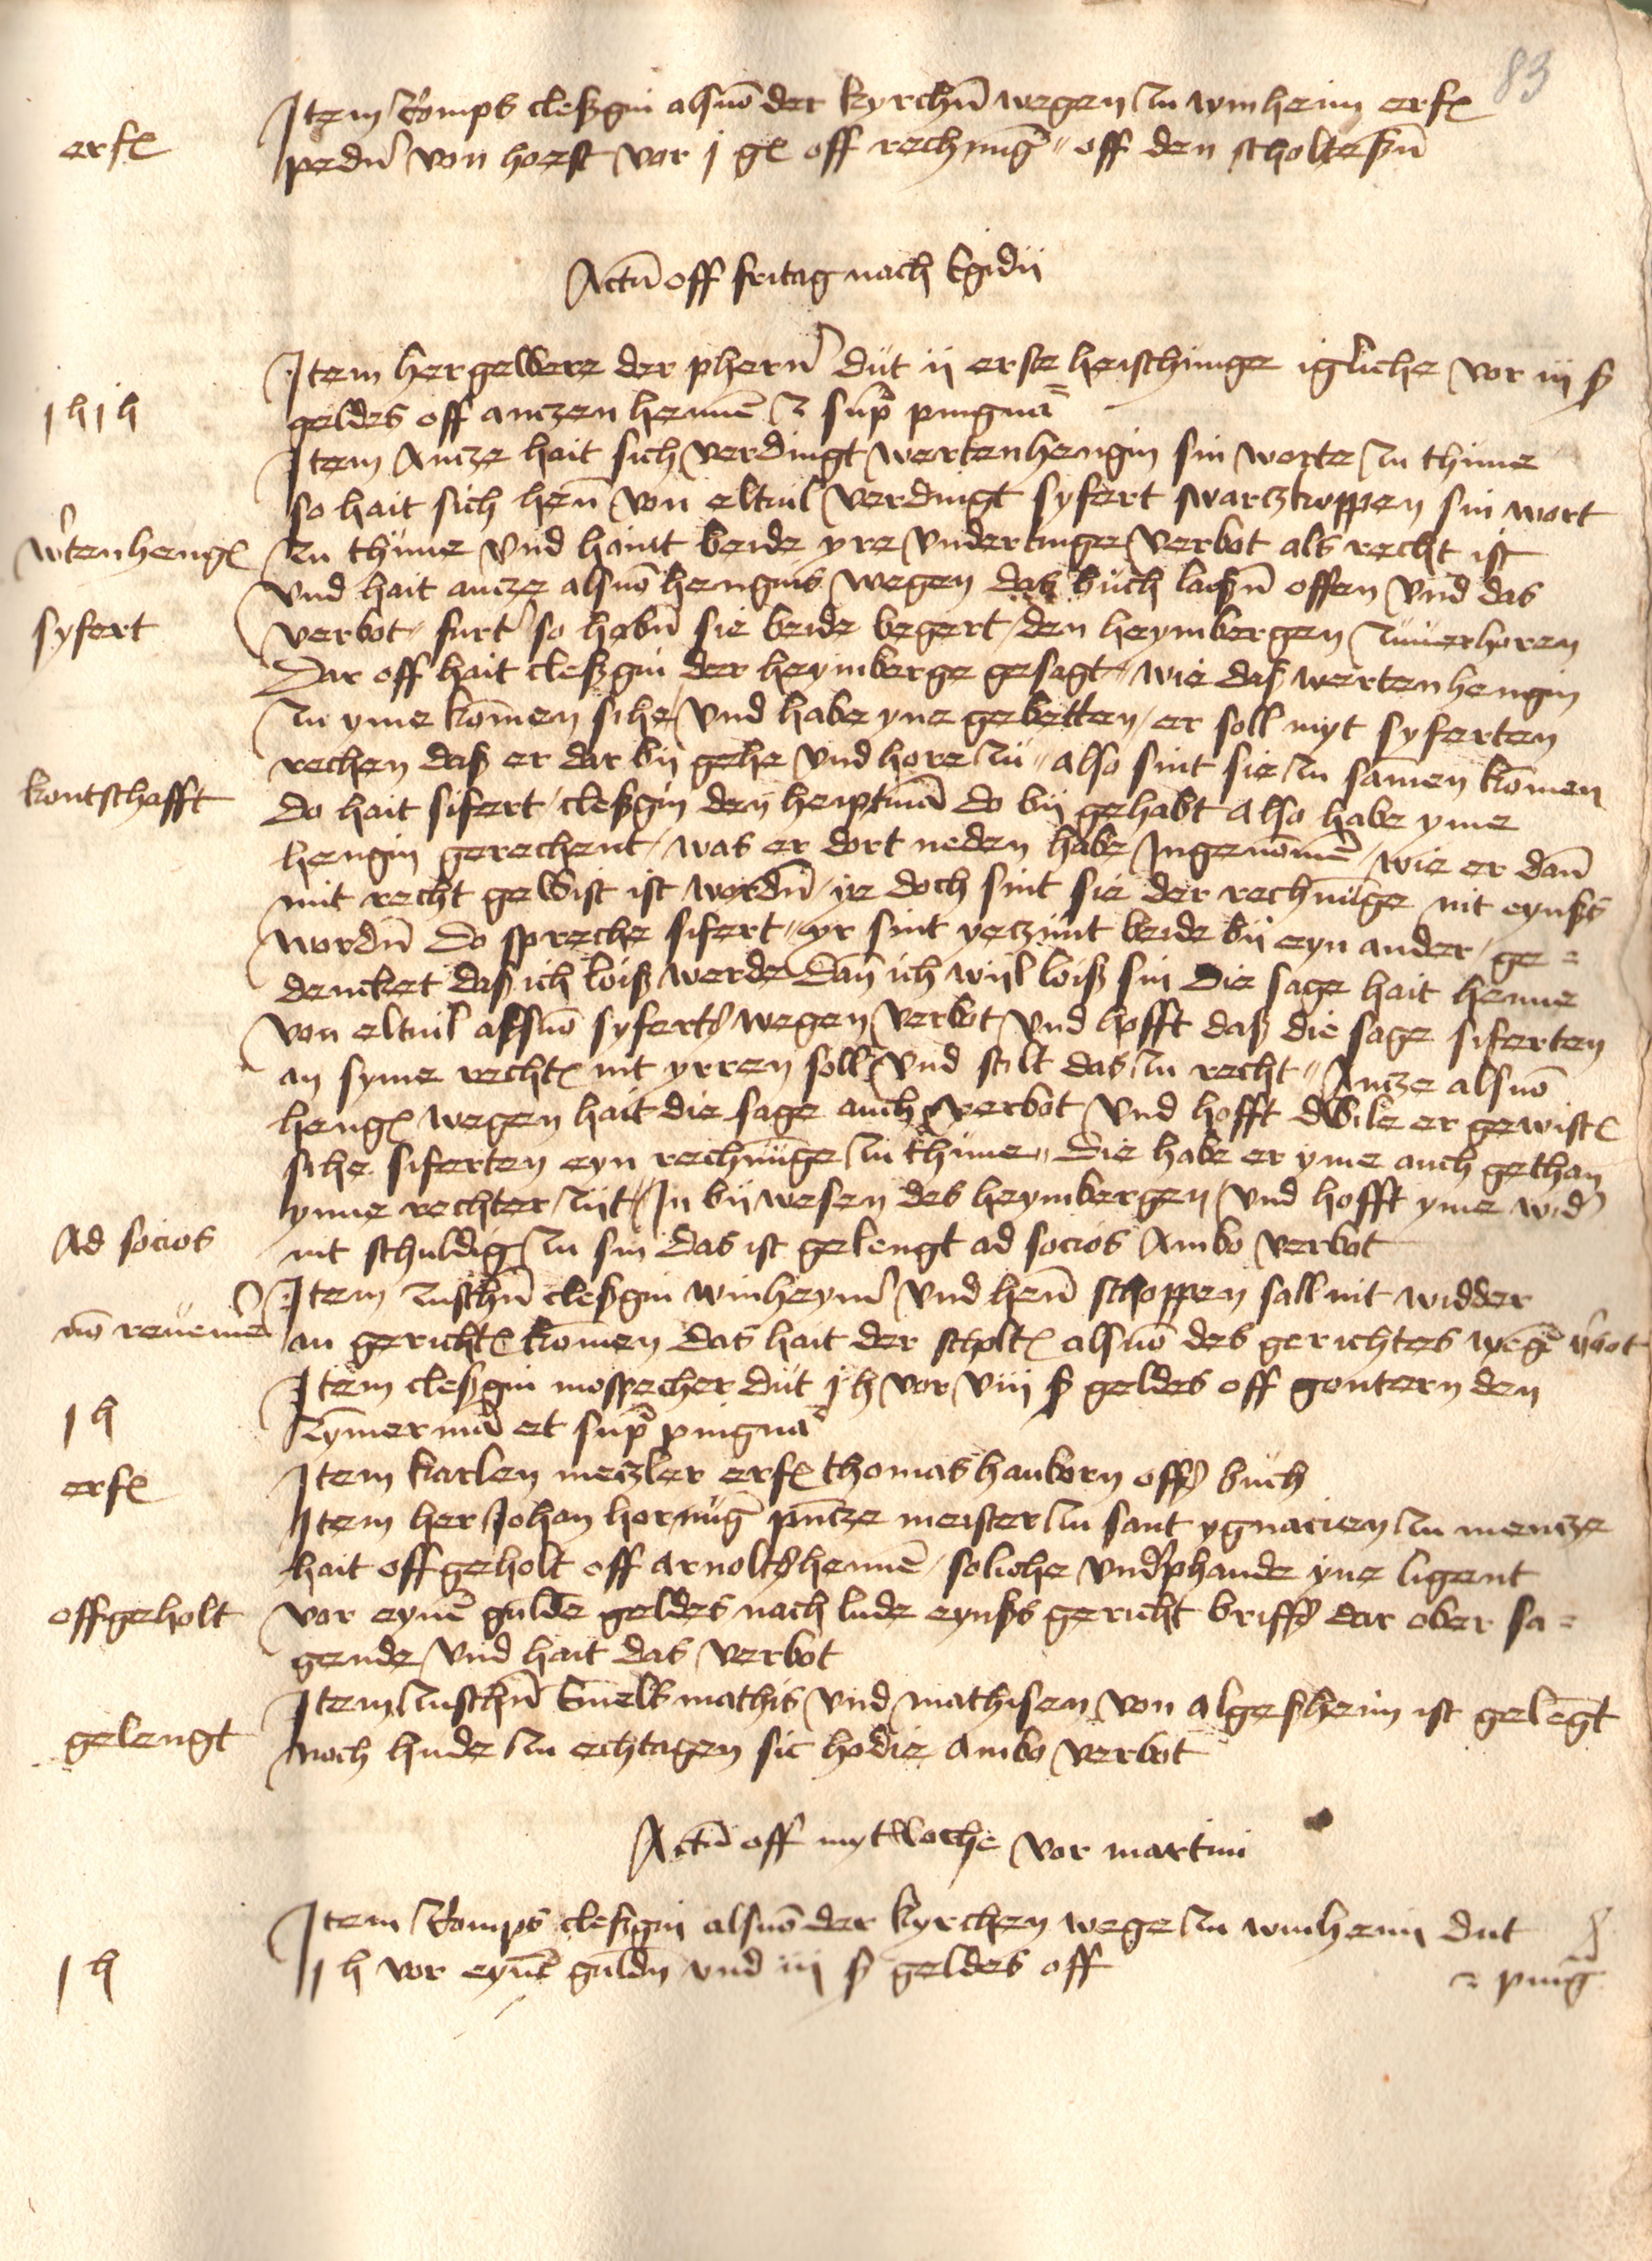 83
Item Comps cleßgin als vō der kyrchn̄ wegen zu winheim erf
erf
pedn̄ von hoest vor j g off rechnūg off den scholteßn̄
Actū off fritag nach Egidii
Item her gewere der pherrn̄ dut ij erste heischunge igliche vor iij ß
j h j h
geldes off anczen hennē et sup pingnā
Item Ancze hait sich verdingt wertenhengin sin worte zu thune
so hait sich hen̄ von eltuil verdingt syfert swarczkoppen sin wort
wtenheng
zu thune vnd haint beide yre vnderdinge verbot als recht ist
vnd hait ancze als vō hengins wegen das buch laißn̄ offen vnd das
syfert
verbot furt so habn̄ sie beide begert den heymbergen zuuerhoren
Dar off hait cleßgin der heymberge gesagt wie daß wertenhengin
zu yme kōmen sihe vnd habe yne gebetten er soll myt syferten
rechen daß er dar bij gehe vnd hore zu also sint sie zu sāmen kōmen
kontschafft
do hait sifert cleßgin den heiptmā do bij gehabt also habe yme
hengin gerechent was er dort neden habe Ingenōmē wie er dan̄
mit recht gewist ist wordn̄ ye doch sint sie der rechnūge nit eynßs
wordn̄ do spreche sifert yr sint yeczunt beide bij eyn ander ge=
dencket daß ich loiß werde dan̄ ich wijl loiß sin Die sage hait henne
von eltuil als vō syferts wegen verbot vnd hofft daß die sage siferten
an syme recht nit yrren soll vnd stilt das zu recht Ancze als vō
heng wegen hait die sage auch verbot vnd hofft dwile er gewist
sihe siferten eyn rechnūge zu thune Die habe er yme auch gethan
ynne rechter zijt In bijwesen des heymbergen vnd hofft yme wid
Ad socios
nit schuldig zu sin das ist gelengt ad socios Ambo verbot
Item zuschn̄ cleßgin winheym̄ vnd hen̄ schoppen sall nit widder
nō reuenie
an gericht kōmen das hait der scholt als vō des gerichtes wegē vbot
Item cleßgin mospecher dut j h vor viij ß geldes off gontern den
j h
zymermā et sup pingnā
erf
Item karlen meczler erf thomas hanborn offs buch
Item her Johan hornūg pn̄cze meister zu sant ygnacien zu mencze
hait offgeholt off arnolts hennē soliche vndphande yne ligent
offgeholt
vor eynē guldē geldes nach lude eynßs gericht briffs dar ober sa=
gende vnd hait das verbot
Item zuschn̄ mathis vnd mathisen von algeßheim ist gelēgt
gelengt
noch hude zu echtagen sic hodie Ambo verbot
Actū off mytwoche vor martini
Item Comps cleßgin als vō der kyrchen wege zu winheim dut
j h
j h vor eynē guldn̄ vnd iij ß geldes off
et pīng